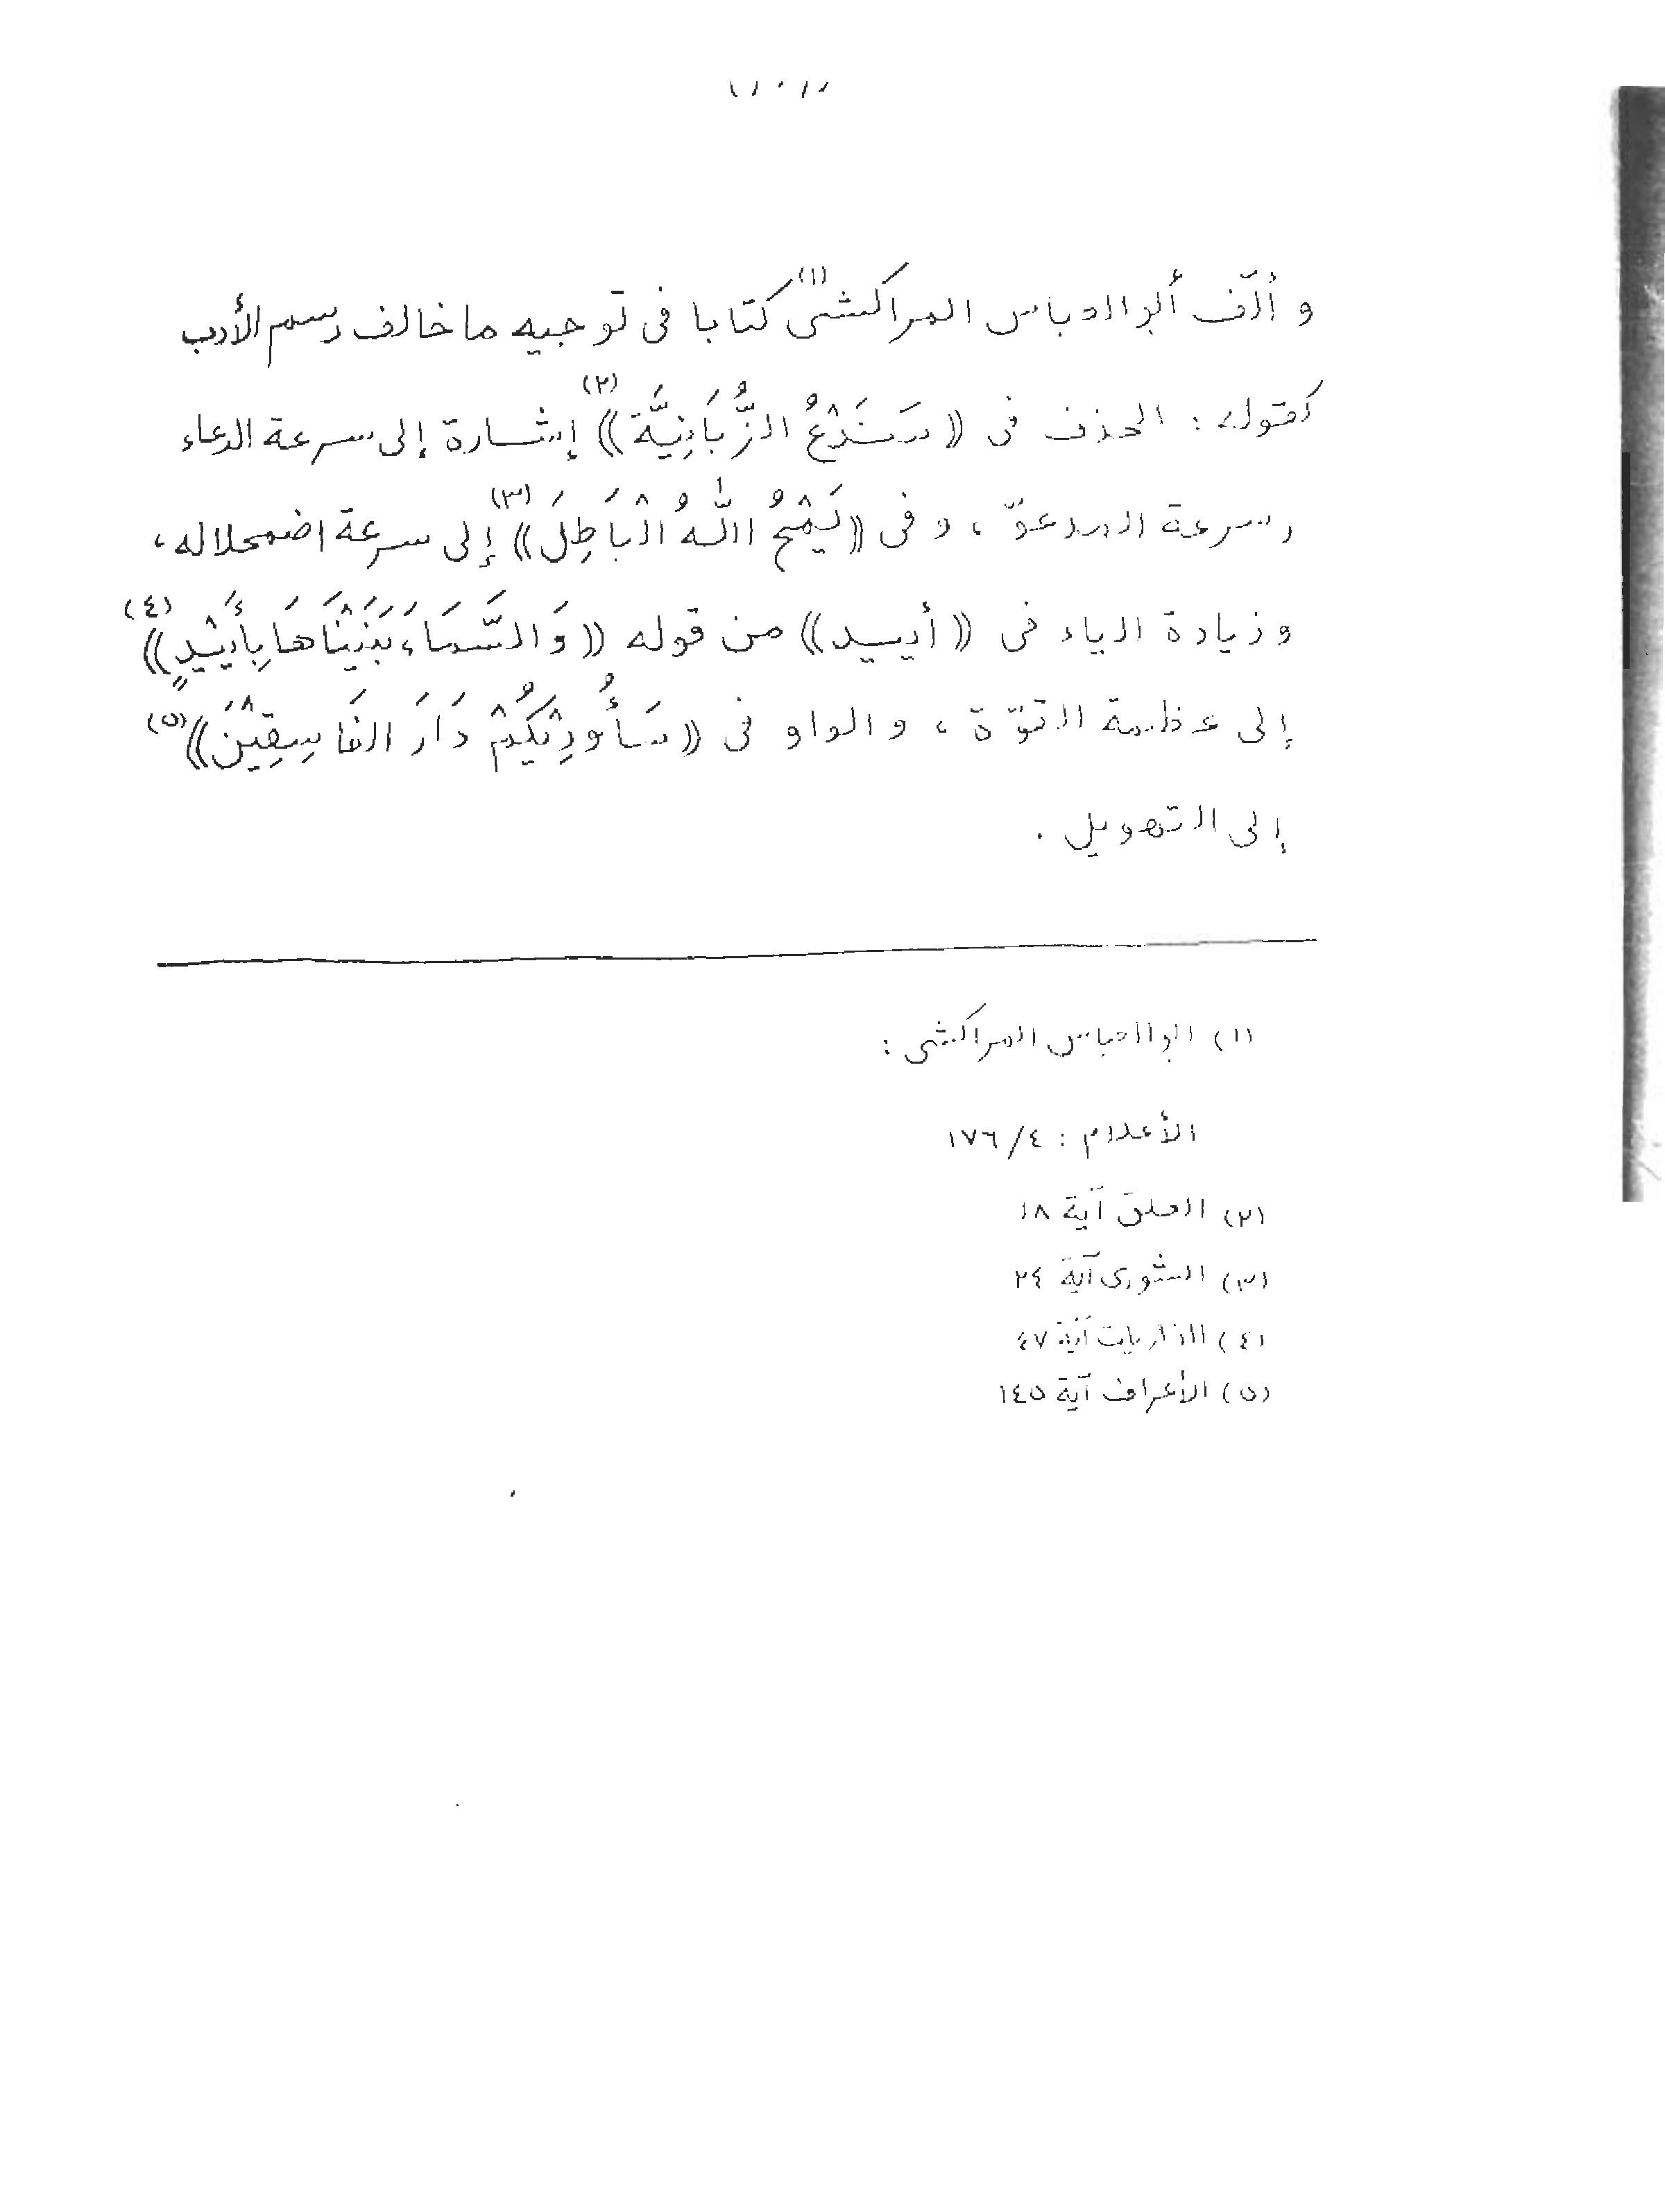 و ألّف أبو العباس المراكشى(١) كتابا فى توجيه ما خالف رسم الأدب
كقوله : الحذف فى ((سَنَدْعُ الزُّبَانِيَّةَ))(٢) إشارة إلى سرعة الدعاء
وسرعة المدعوّ ، و فى ((يَمْحُ اللّٰهُ الْبَاطِلَ))(٣) إلى سرعة اضمحلاله ،
و زيادة الياء فى ((أييد)) من قوله ((وَالسَّمَاءَ بَنَيْنَاهَا بِأَيْيْدٍ))(٤)
إلى عظمة القوّة ، و الواو فى ((سَأُورِيْكُمْ دَارَ الفَاسِقِيْنَ))(٥)
إلى التهويل .
(١) ابو العباس المراكشى :
الأعلام : ٤/ ١٧٦
(٢) العلق آية ١٨
(٣) الشورى آية ٢٤
(٤) الذاريات آية ٤٧
(٥) الأعراف آية ١٤٥